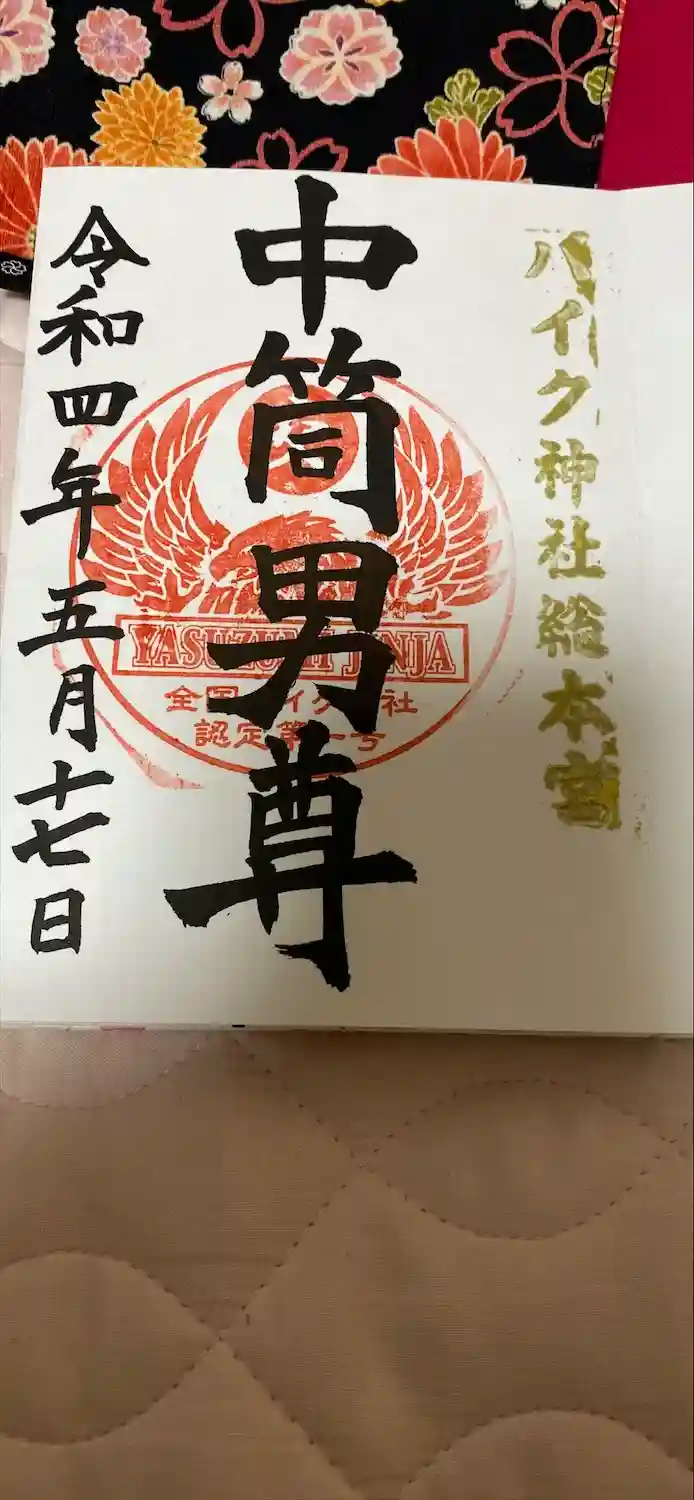 バイク神社総本宮
中筒男尊
YASUZUMI JINJA
全国バイク神社
認定第一号
令和四年五月十七日